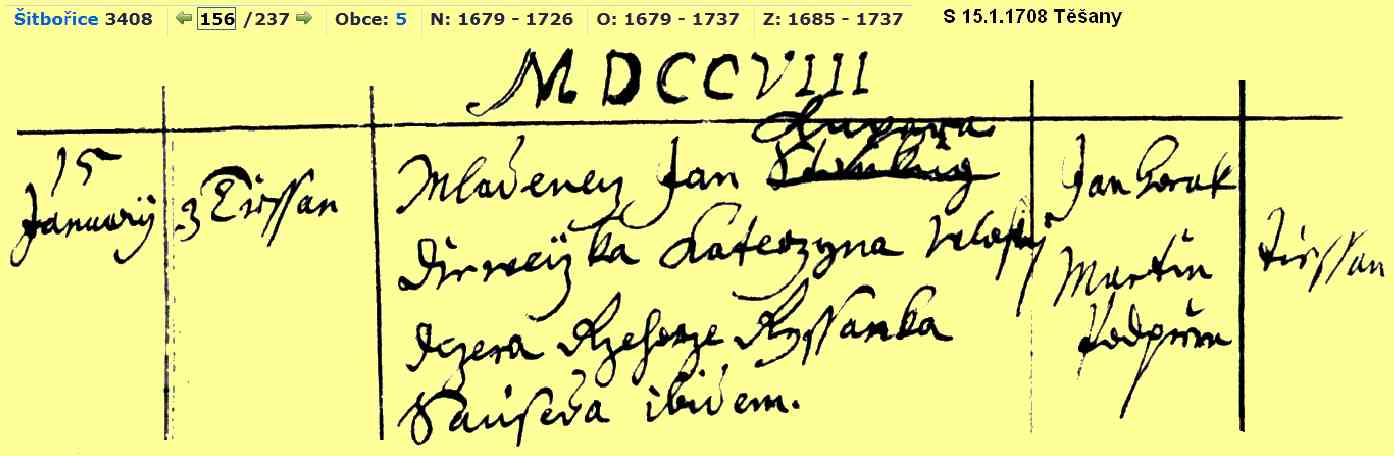 Šitbořice 3408 156 /237 Obce: 5 N: 1679 - 1726 O: 1679 - 1737 Z: 1685 - 1737 S 15.1.1708 Těšany
MDCCVIII
15
Januarÿ
z Tiessan
Mladenecz Jan
Diewcżka Katerzyna
dczera Rzehorze Ryssanka
Sauseda ibidem.
Jan Horak
Martin
Tiessan